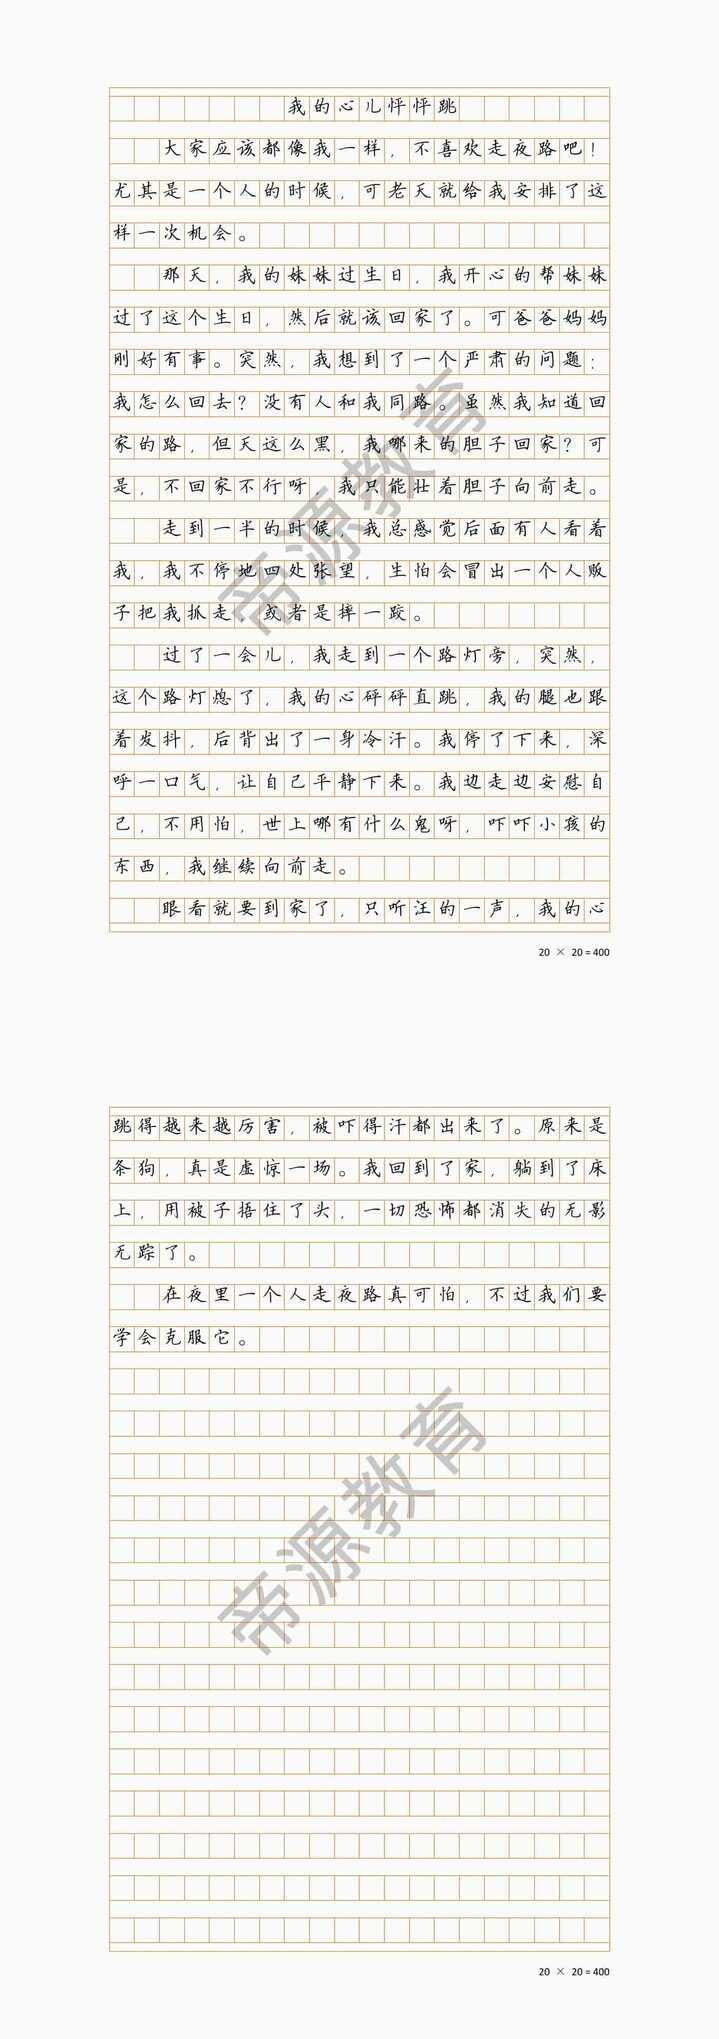 我的心儿怦怦跳
大家应该都像我一样，不喜欢走夜路吧！
尤其是一个人的时候，可老天就给我安排了这
样一次机会。
那天，我的妹妹过生日，我开心的帮妹妹
过了这个生日，然后就该回家了。可爸爸妈妈
刚好有事。突然，我想到了一个严肃的问题：
我怎么回去？没有人和我同路。虽然我知道回
家的路，但天这么黑，我哪来的胆子回家？可
是，不回家不行呀，我只能壮着胆子向前走。
走到一半的时候，我总感觉后面有人看着
我，我不停地四处张望，生怕会冒出一个人贩
子把我抓走，或者是摔一跤。
过了一会儿，我走到一个路灯旁，突然，
这个路灯熄了，我的心砰砰直跳，我的腿也跟
着发抖，后背出了一身冷汗。我停了下来，深
呼一口气，让自己平静下来。我边走边安慰自
己，不用怕，世上哪有什么鬼呀，吓吓小孩的
东西，我继续向前走。
眼看就要到家了，只听汪的一声，我的心
20 × 20 = 400
跳得越来越厉害，被吓得汗都出来了。原来是
条狗，真是虚惊一场。我回到了家，躺到了床
上，用被子捂住了头，一切恐怖都消失的无影
无踪了。
在夜里一个人走夜路真可怕，不过我们要
学会克服它。
20 × 20 = 400
帝源教育
帝源教育